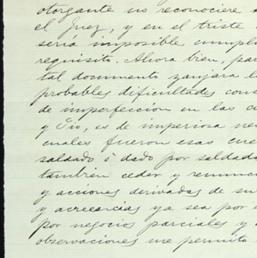 otorgante no reconociere
el Juez, y en el triste
seria imposible cumpli
requisito. Ahora bien, par
tal documento zanjara l
probables dificultades con
de imperfeccion en las c
y Tio, es de imperiosa ne
cuales fueron esas cue
saldado ó dado por saldada
tambien ceder y renunci
y acciones derivadas de su
y acreencias ya sea por
por negocios parciales y
observaciones me permito